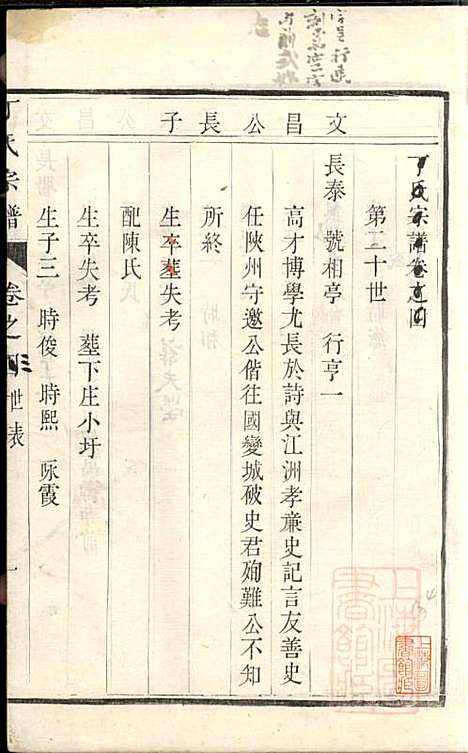 丁氏宗譜卷之四
第二十世
文昌公長子
長泰 號相亭 行亨一
高才博學尤長於詩與江洲孝亷史記言友善史
任陜州守邀公偕往國變城破史君殉難公不知
所終
生卒塟失考
配陳氏
生卒失考 塟下庄小圩
生子三 時俊 時熙 咏霞
丁氏宗譜 卷之四 世表 一
上海圖書館藏
上海圖書館藏